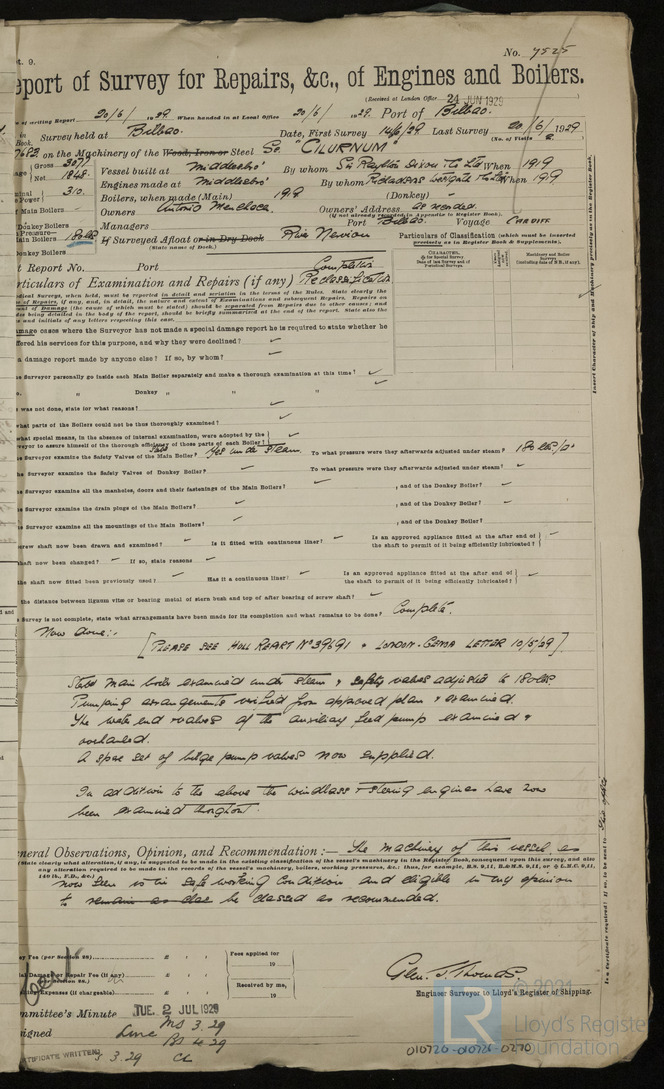 No. 7525
eport of Survey for Repairs, &c., of Engines and Boilers.
(Received at London Office 24 JUN 1929
of writing Report 20/6/ 1929 When handed in at Local Office 20/6/ 1929. Port of Bilbao.
Survey held at Bilbao. Date, First Survey 14/6/29 Last Survey 20/6/1929
(No. of Visits
on the Machinery of the Wood, Iron or Steel Sc. "CILURNUM"
Gross 3071
Net 1848.
Vessel built at Middlesbro' By whom Sir Raylton Dixon & Co Ltd When 1919
Engines made at Middlesbro' By whom Richardsons Westgarth & Co Ltd When 1919
310.
Boilers, when made (Main) 1919 (Donkey) -
Owners Antonio Menchaca. Owners' Address as needed
(if not already recorded in Appendix to Register Book.)
Managers Port Bilbao. Voyage CARDIFF
Main Boilers 180 lb
Donkey Boilers
If Surveyed Afloat or in Dry Dock River Nervion
(State name of Dock.)
Particulars of Classification (which must be inserted precisely as in Register Book & Supplements).
t Report No. Port
Completion
rticulars of Examination and Repairs (if any) Reclassification
amage cases where the Surveyor has not made a special damage report he is required to state whether he
ffered his services for this purpose, and why they were declined?
a damage report made by anyone else? If so, by whom?
e Surveyor personally go inside each Main Boiler separately and make a thorough examination at this time?
o. " Donkey " " "
was not done, state for what reasons?
what parts of the Boilers could not be thus thoroughly examined?
what special means, in the absence of internal examination, were adopted by the
veyor to assure himself of the thorough efficiency of those parts of each Boiler?
e Surveyor examine the Safety Valves of the Main Boiler? Yes under steam. To what pressure were they afterwards adjusted under steam? 180 lbs/□"
e Surveyor examine the Safety Valves of Donkey Boiler? To what pressure were they afterwards adjusted under steam?
e Surveyor examine all the manholes, doors and their fastenings of the Main Boilers? , and of the Donkey Boiler?
e Surveyor examine the drain plugs of the Main Boilers? , and of the Donkey Boiler?
e Surveyor examine all the mountings of the Main Boilers? , and of the Donkey Boiler?
crew shaft now been drawn and examined? Is it fitted with continuous liner? Is an approved appliance fitted at the after end of the shaft to permit of it being efficiently lubricated?
haft now been changed? If so, state reasons
the shaft now fitted been previously used? Has it a continuous liner? Is an approved appliance fitted at the after end of the shaft to permit of it being efficiently lubricated?
the distance between lignum vitæ or bearing metal of stern bush and top of after bearing of screw shaft?
e Survey is not complete, state what arrangements have been made for its completion and what remains to be done? Complete.
Now done:-
[PLEASE SEE HULL REPORT No 39691 & LONDON-GENOA LETTER 10/5/29].
Stbd main boiler examined under steam & safety valves adjusted to 180 lbs
Pumping arrangements verified from approved plan & examined.
The water end & valves of the auxiliary feed pump examined &
overhauled.
A spare set of bilge pump valves now supplied.
In addition to the above the windlass & steering engines have now
been examined throughout.
neral Observations, Opinion, and Recommendation:— The machinery of this vessel, as
(State clearly what alteration, if any, is suggested to be made in the existing classification of the vessel's machinery in the Register Book, consequent upon this survey, and also
any alteration required to be made in the records of the vessel's machinery, boilers, working pressures, &c.; thus, for example, B.S. 9,11, B.&M.S. 9,11, or ✠ L.M.C. 9,11,
140 lb., F.D., &c.)
now seen is in safe working condition and eligible in my opinion
to remain as clas be classed as recommended.
ey Fee (per Section 28) £ : :
Damage or Repair Fee (if any) £ : :
Expenses (if chargeable) £ : :
Fees applied for
19
Received by me,
19
Glen. J. Thomas.
Engineer Surveyor to Lloyd's Register of Shipping.
mmittee's Minute TUE. 2 JUL 1929
signed
MS 3.29
BS 4.29
CL
CERTIFICATE WRITTEN
3.29
© 2021
LR
Lloyd's Register
Foundation
010720-010726-0270
Insert Character of Ship and Machinery precisely as in the Register Book.
Is a Certificate required? If so, to be sent to